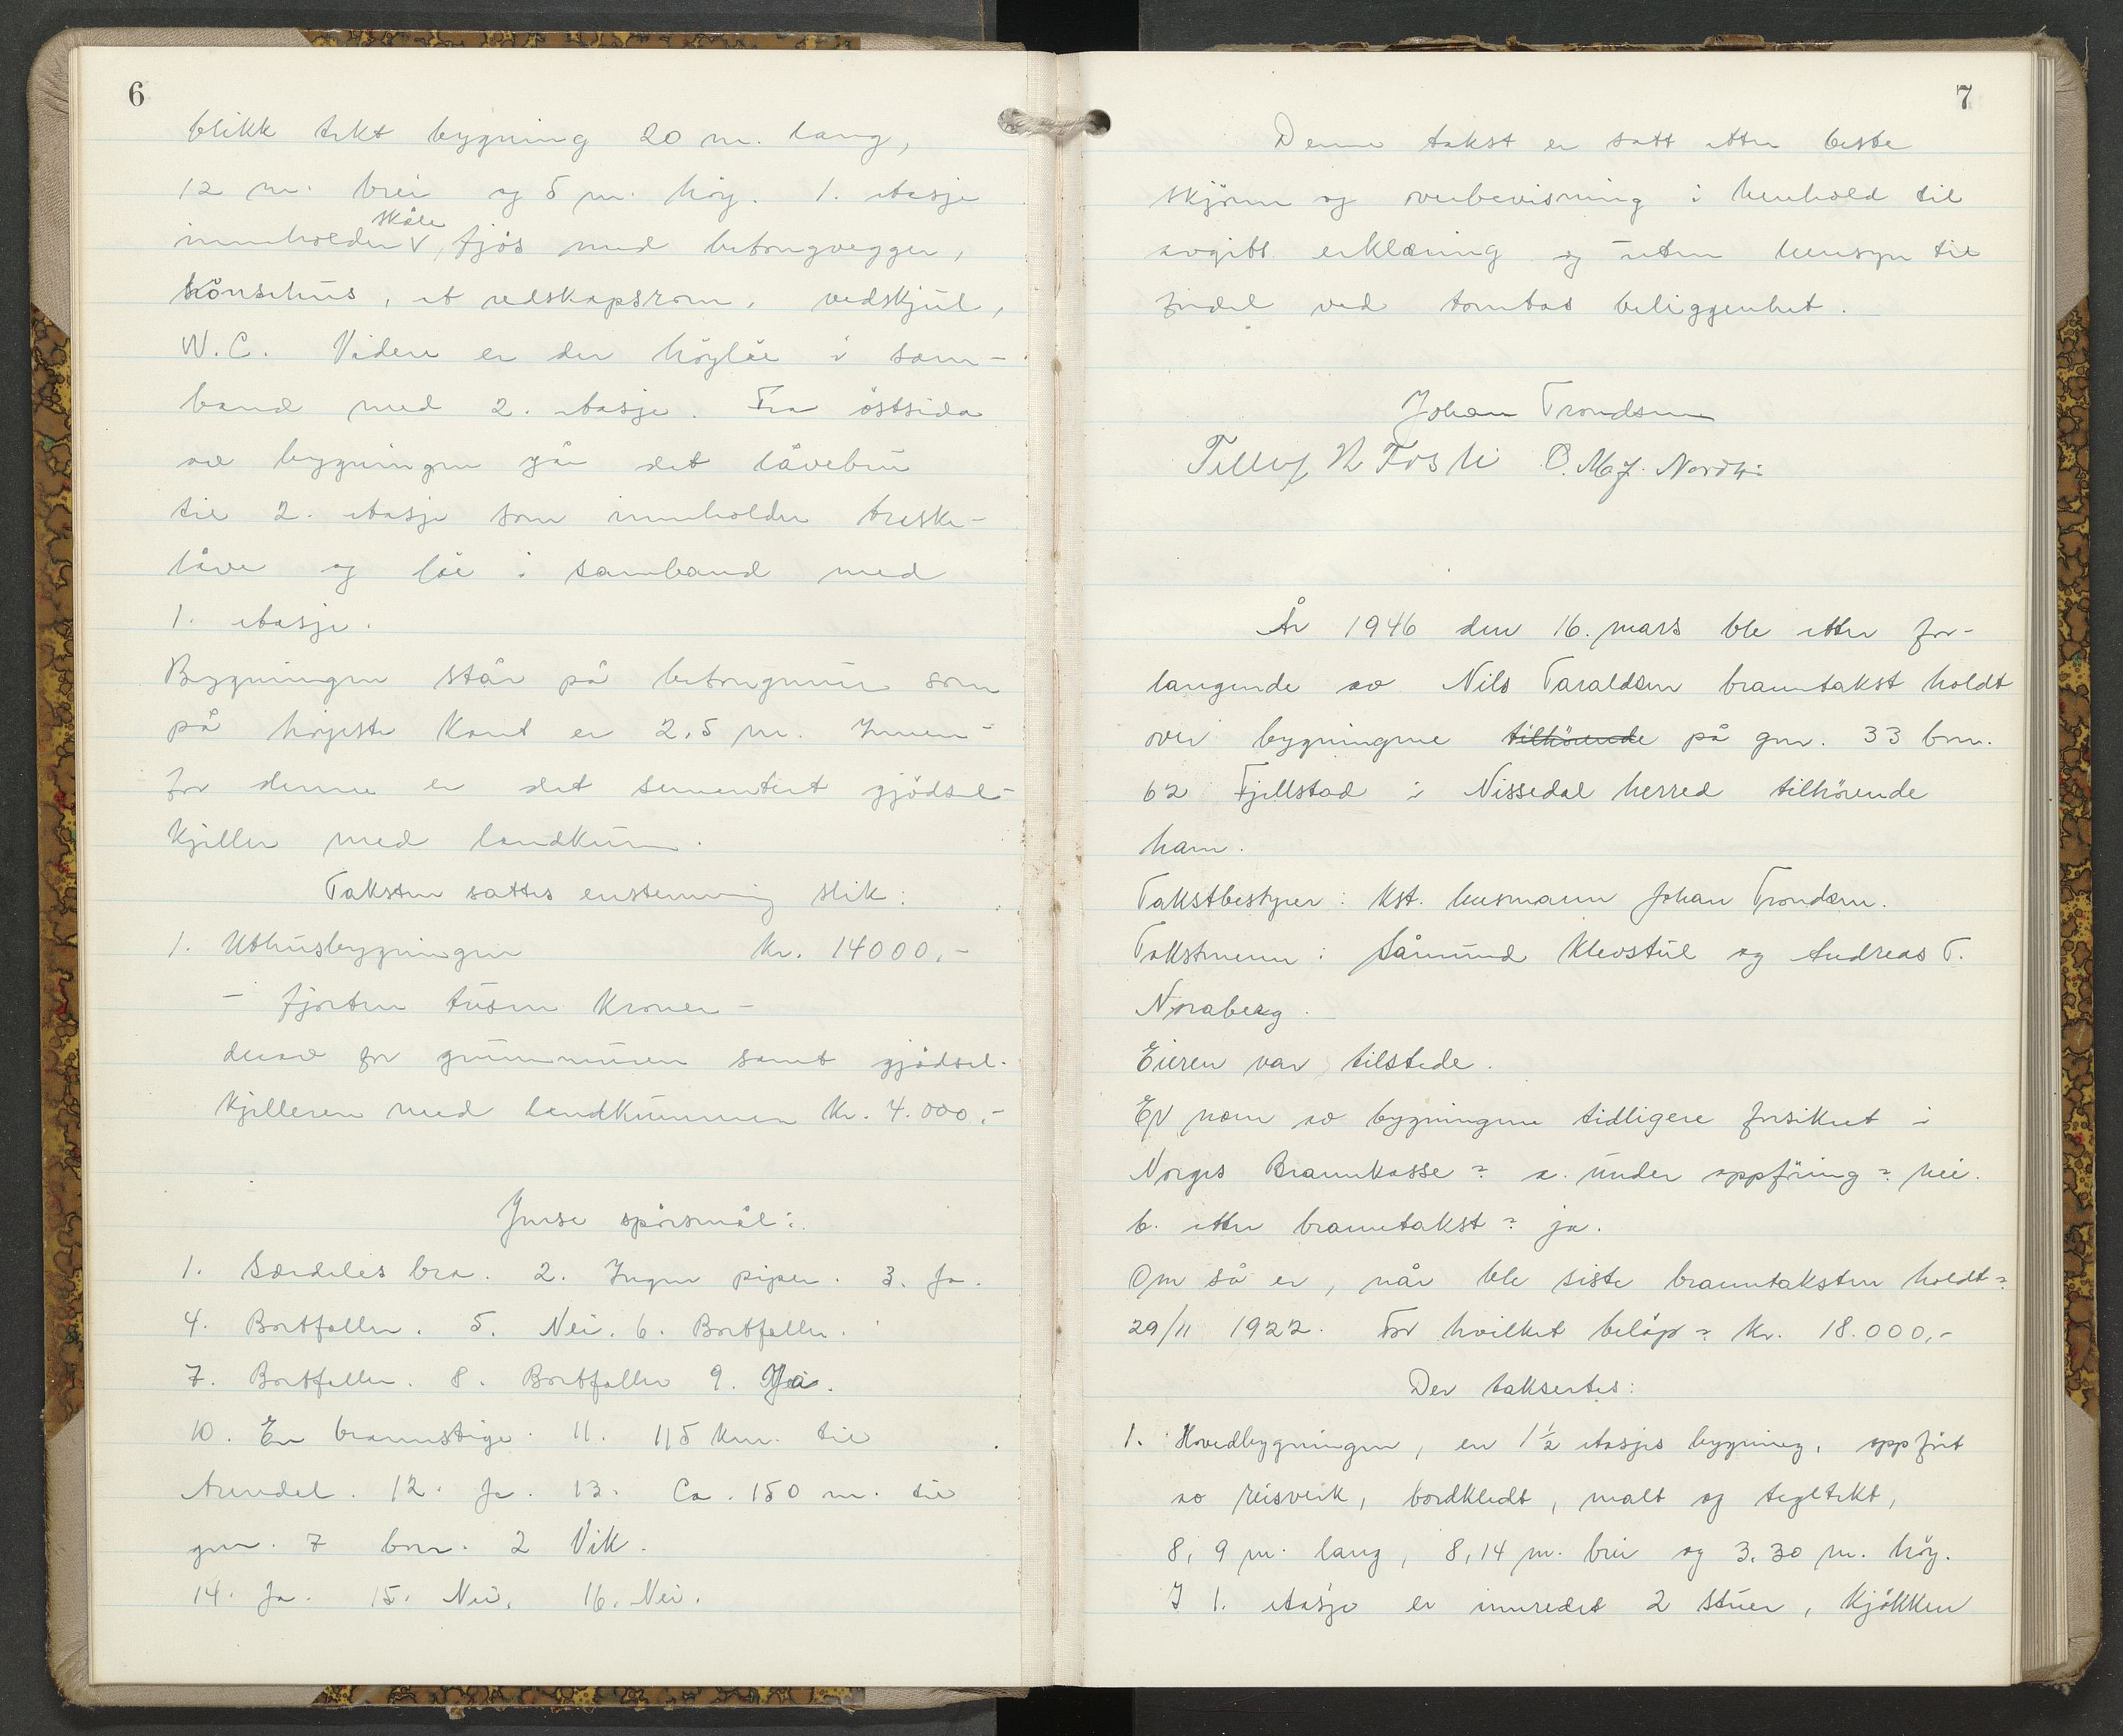 6
blikk tekt bygning 20 m. lang,
12 m. brei og 5 m. høg. 1. etasje
skåle
innholder V, fjös med betongvegger,
hönsehus, et redskapsrom, vedskjul,
W.C. Videre er der höyløe i sam-
band med 2. etasje. Fra östsida
av bygningen går det låvebru
til 2. etasje som innholder treske-
låve og løe i samband med
1. etasje.
Bygningen står på betongmur som
på høyeste kant er 2,5 m. Innen-
for denne er det sementert gjödsel-
kjeller med landkum.
Taksten sattes enstemmig slik:
1. Uthusbygningen kr. 14000,-
- fjorten tusen kroner -
derav for grunnmuren samt gjödsel-
kjelleren med landkummen kr. 4.000,-
Ymse spörsmål:
1. Særdeles bra. 2. Ingen piper. 3. Ja.
4. Bortfaller. 5. Nei. 6. Bortfaller.
7. Bortfaller. 8. Bortfaller 9. Ja.
10. En brannstige. 11. 115 km. til
Arendal. 12. Ja. 13. Ca. 150 m. til
gnr. 7 bnr. 2 Vik.
14. Ja. 15. Nei. 16. Nei.
7
Denne takst er satt etter beste
skjönn og overbevisning i henhold til
avgitt erklæring og uten hensyn til
fordel ved tomtas beliggenhet.
Johan Trondsen
Tellef N Foshei O. M. J. Nordbö
År 1946 den 16. mars ble etter for-
langende av Nils Taraldsen branntakst holdt
over bygningene tilhörende på gnr. 33 bnr.
62 Fjellstad i Nissedal herred tilhörende
ham.
Takstbestyrer: kst. lensmann Johan Trondsen.
Takstmenn: Såmund Klevstul og Andreas T.
Noraberg.
Eieren var tilstede.
Er noen av bygningene tidligere forsikret i
Norges Brannkasse? a. under oppföring? nei.
b. etter branntakst? ja.
Om så er, når ble siste branntaksten holdt?
29/11 1922. For hvilket belöp? kr. 18.000,-
Der taksertes:
1. Hovedbygningen, en 1½ etasjes bygning, oppfört
av reisverk, bordkledt, malt og tegltekt,
8,9 m. lang, 8,14 m. brei og 3,30 m. høy.
I 1. etasje er innredet 2 stuer, kjökken